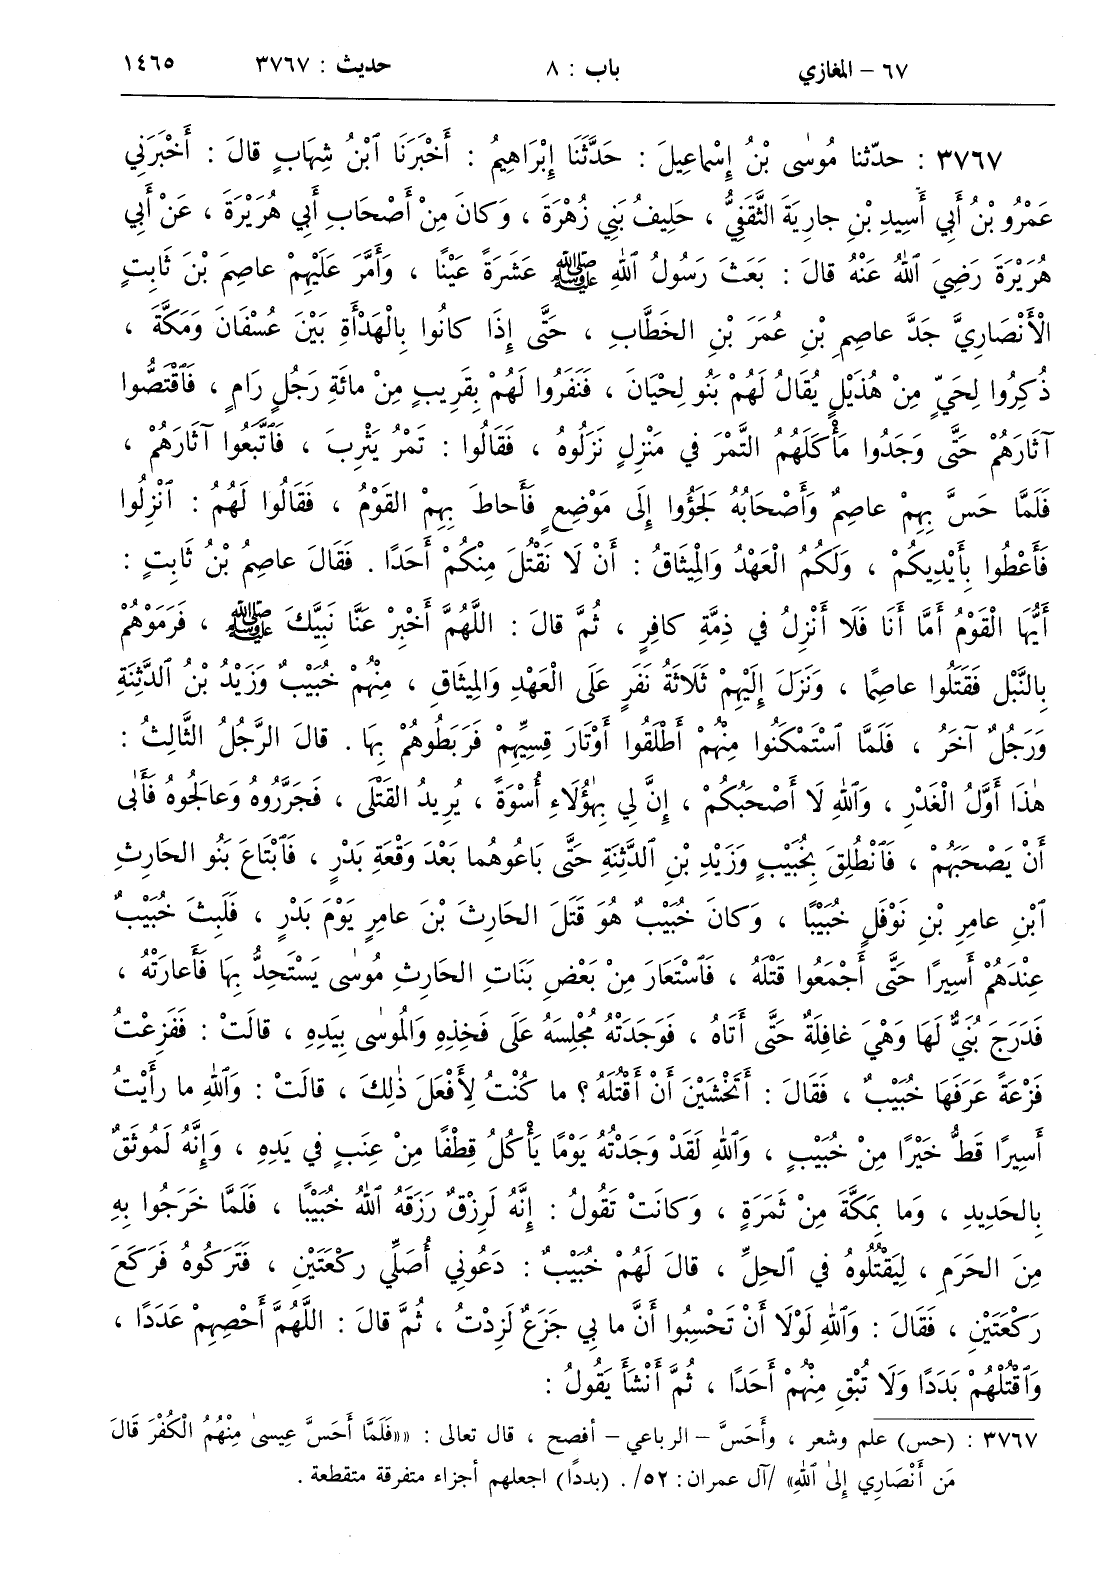 ٦٧ – المغازي باب : ٨ حديث : ٣٧٦٧ ١٤٦٥
٣٧٦٧ : حدّثنا مُوسٰى بْنُ إِسْماعِيلَ : حَدَّثَنَا إِبْرَاهِيمُ : أَخْبَرَنَا ٱبْنُ شِهَابٍ قالَ : أَخْبَرَنِي
عَمْرُو بْنُ أَبِي أَسِيدِ بْنِ جارِيَةَ الثَّقَفِيُّ ، حَلِيفُ بَنِي زُهْرَةَ ، وَكانَ مِنْ أَصْحَابِ أَبِي هُرَيْرَةَ ، عَنْ أَبِي
هُرَيْرَةَ رَضِيَ ٱللهُ عَنْهُ قالَ : بَعَثَ رَسُولُ ٱللهِ ﷺ عَشَرَةً عَيْنًا ، وَأَمَّرَ عَلَيْهِمْ عاصِمَ بْنَ ثَابِتٍ
الْأَنْصَارِيَّ جَدَّ عاصِمِ بْنِ عُمَرَ بْنِ الخَطَّابِ ، حَتَّى إِذَا كانُوا بِالْهَدْأَةِ بَيْنَ عُسْفَانَ وَمَكَّةَ ،
ذُكِرُوا لِحَيٍّ مِنْ هُذَيْلٍ يُقَالُ لَهُمْ بَنُو لِحْيَانَ ، فَنَفَرُوا لَهُمْ بِقَرِيبٍ مِنْ مائَةِ رَجُلٍ رَامٍ ، فَٱقْتَصُّوا
آثَارَهُمْ حَتَّى وَجَدُوا مَأْكَلَهُمُ التَّمْرَ في مَنْزِلٍ نَزَلُوهُ ، فَقَالُوا : تَمْرُ يَثْرِبَ ، فَٱتَّبَعُوا آثَارَهُمْ ،
فَلَمَّا حَسَّ بِهِمْ عاصِمٌ وَأَصْحَابُهُ لَجَؤُوا إِلَى مَوْضِعٍ فَأَحاطَ بِهِمِ القَوْمُ ، فَقَالُوا لَهُمُ : ٱنْزِلُوا
فَأَعْطُوا بِأَيْدِيكُمْ ، وَلَكُمُ الْعَهْدُ وَالْمِيثَاقُ : أَنْ لَا نَقْتُلَ مِنْكُمْ أَحَدًا . فَقَالَ عاصِمُ بْنُ ثَابِتٍ :
أَيُّهَا الْقَوْمُ أَمَّا أَنَا فَلَا أَنْزِلُ في ذِمَّةِ كافِرٍ ، ثُمَّ قالَ : اللَّهُمَّ أَخْبِرْ عَنَّا نَبِيَّكَ ﷺ ، فَرَمَوْهُمْ
بِالنَّبْلِ فَقَتَلُوا عاصِمًا ، وَنَزَلَ إِلَيْهِمْ ثَلَاثَةُ نَفَرٍ عَلَى الْعَهْدِ وَالْمِيثَاقِ ، مِنْهُمْ خُبَيْبٌ وَزَيْدُ بْنُ الدَّثِنَةِ
وَرَجُلٌ آخَرُ ، فَلَمَّا ٱسْتَمْكَنُوا مِنْهُمْ أَطْلَقُوا أَوْتَارَ قِسِيِّهِمْ فَرَبَطُوهُمْ بِهَا . قالَ الرَّجُلُ الثَّالِثُ :
هٰذَا أَوَّلُ الْغَدْرِ ، وَٱللهِ لَا أَصْحَبُكُمْ ، إِنَّ لِي بِهٰؤُلَاءِ أُسْوَةً ، يُرِيدُ القَتْلَى ، فَجَرَّرُوهُ وَعالَجُوهُ فَأَبٰى
أَنْ يَصْحَبَهُمْ ، فَٱنْطُلِقَ بِخُبَيْبٍ وَزَيْدِ بْنِ الدَّثِنَةِ حَتَّى بَاعُوهُما بَعْدَ وَقْعَةِ بَدْرٍ ، فَٱبْتَاعَ بَنُو الحَارِثِ
ٱبْنِ عامِرِ بْنِ نَوْفَلٍ خُبَيْبًا ، وَكانَ خُبَيْبٌ هُوَ قَتَلَ الحَارِثَ بْنَ عامِرٍ يَوْمَ بَدْرٍ ، فَلَبِثَ خُبَيْبٌ
عِنْدَهُمْ أَسِيرًا حَتَّى أَجْمَعُوا قَتْلَهُ ، فَٱسْتَعَارَ مِنْ بَعْضِ بَنَاتِ الحَارِثِ مُوسٰى يَسْتَحِدُّ بِهَا فَأَعارَتْهُ ،
فَدَرَجَ بُنَيٌّ لَهَا وَهْيَ غافِلَةٌ حَتَّى أَتَاهُ ، فَوَجَدَتْهُ مُجْلِسَهُ عَلَى فَخِذِهِ وَالْمُوسٰى بِيَدِهِ ، قالَتْ : فَفَزِعْتُ
فَزْعَةً عَرَفَهَا خُبَيْبٌ ، فَقَالَ : أَتَخْشَيْنَ أَنْ أَقْتُلَهُ ؟ ما كُنْتُ لِأَفْعَلَ ذٰلِكَ ، قالَتْ : وَٱللهِ ما رأَيْتُ
أَسِيرًا قَطُّ خَيْرًا مِنْ خُبَيْبٍ ، وَٱللهِ لَقَدْ وَجَدْتُهُ يَوْمًا يَأْكُلُ قِطْفًا مِنْ عِنَبٍ في يَدِهِ ، وَإِنَّهُ لَمُوثَقٌ
بِالحَدِيدِ ، وَما بِمَكَّةَ مِنْ ثَمَرَةٍ ، وَكانَتْ تَقُولُ : إِنَّهُ لَرِزْقٌ رَزَقَهُ ٱللهُ خُبَيْبًا ، فَلَمَّا خَرَجُوا بِهِ
مِنَ الحَرَمِ ، لِيَقْتُلُوهُ في ٱلحِلِّ ، قالَ لَهُمْ خُبَيْبٌ : دَعُونِي أُصَلِّي رَكْعَتَيْنِ ، فَتَرَكُوهُ فَرَكَعَ
رَكْعَتَيْنِ ، فَقَالَ : وَٱللهِ لَوْلَا أَنْ تَحْسِبُوا أَنَّ ما بِي جَزَعٌ لَزِدْتُ ، ثُمَّ قالَ : اللَّهُمَّ أَحْصِهِمْ عَدَدًا ،
وَٱقْتُلْهُمْ بَدَدًا وَلَا تُبْقِ مِنْهُمْ أَحَدًا ، ثُمَّ أَنْشَأَ يَقُولُ :
٣٧٦٧ : (حس) علم وشعر ، وأَحَسَّ – الرباعي – أفصح ، قال تعالى : «﴿فَلَمَّا أَحَسَّ عِيسىٰ مِنْهُمُ الْكُفْرَ قَالَ
مَن أَنْصَارِي إِلىٰ ٱللهِ﴾ /آل عمران: ٥٢/. (بددًا) اجعلهم أجزاء متفرقة متقطعة .